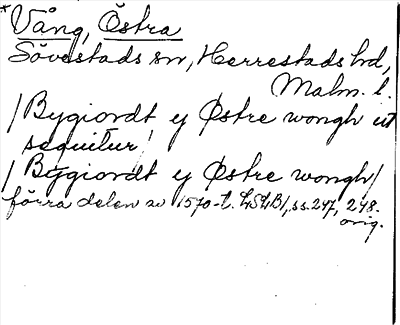 *Vång, Östra
Sövestads sn, Herrestads hd,
Malm. l.
/Bygiordt ej Østre wongh ut
sequitur/
/Bÿgiordt ej Østre wongh/
förra delen av 1570-t. LSLB/, ss. 247, 248.
orig.